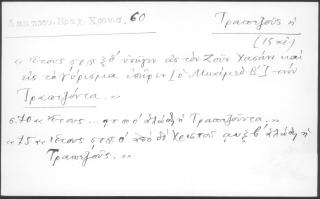 Λαμπρου, Βραχ. Χρονικ. 60
Τραπεζοῦς ἡ
(15 αἰ)
« Ἔτους ϛ ϡ ξ θ' ὑπῆγεν εἰς τὸν Ζοὺν Χασάνη καὶ
εἰς τὸ γύρισμα ἐπῆρεν [ὁ Μωάμεθ Β'] τὴν
Τραπεζόντα. »
σ. 70 « Ἔτους ... ἁλώθη ἡ Τραπεζοῦντα. »
« 75 « Ἔτους ἀπὸ δὲ Χριστοῦ αυξβ ἁλώθη ἡ
Τραπεζοῦς. »